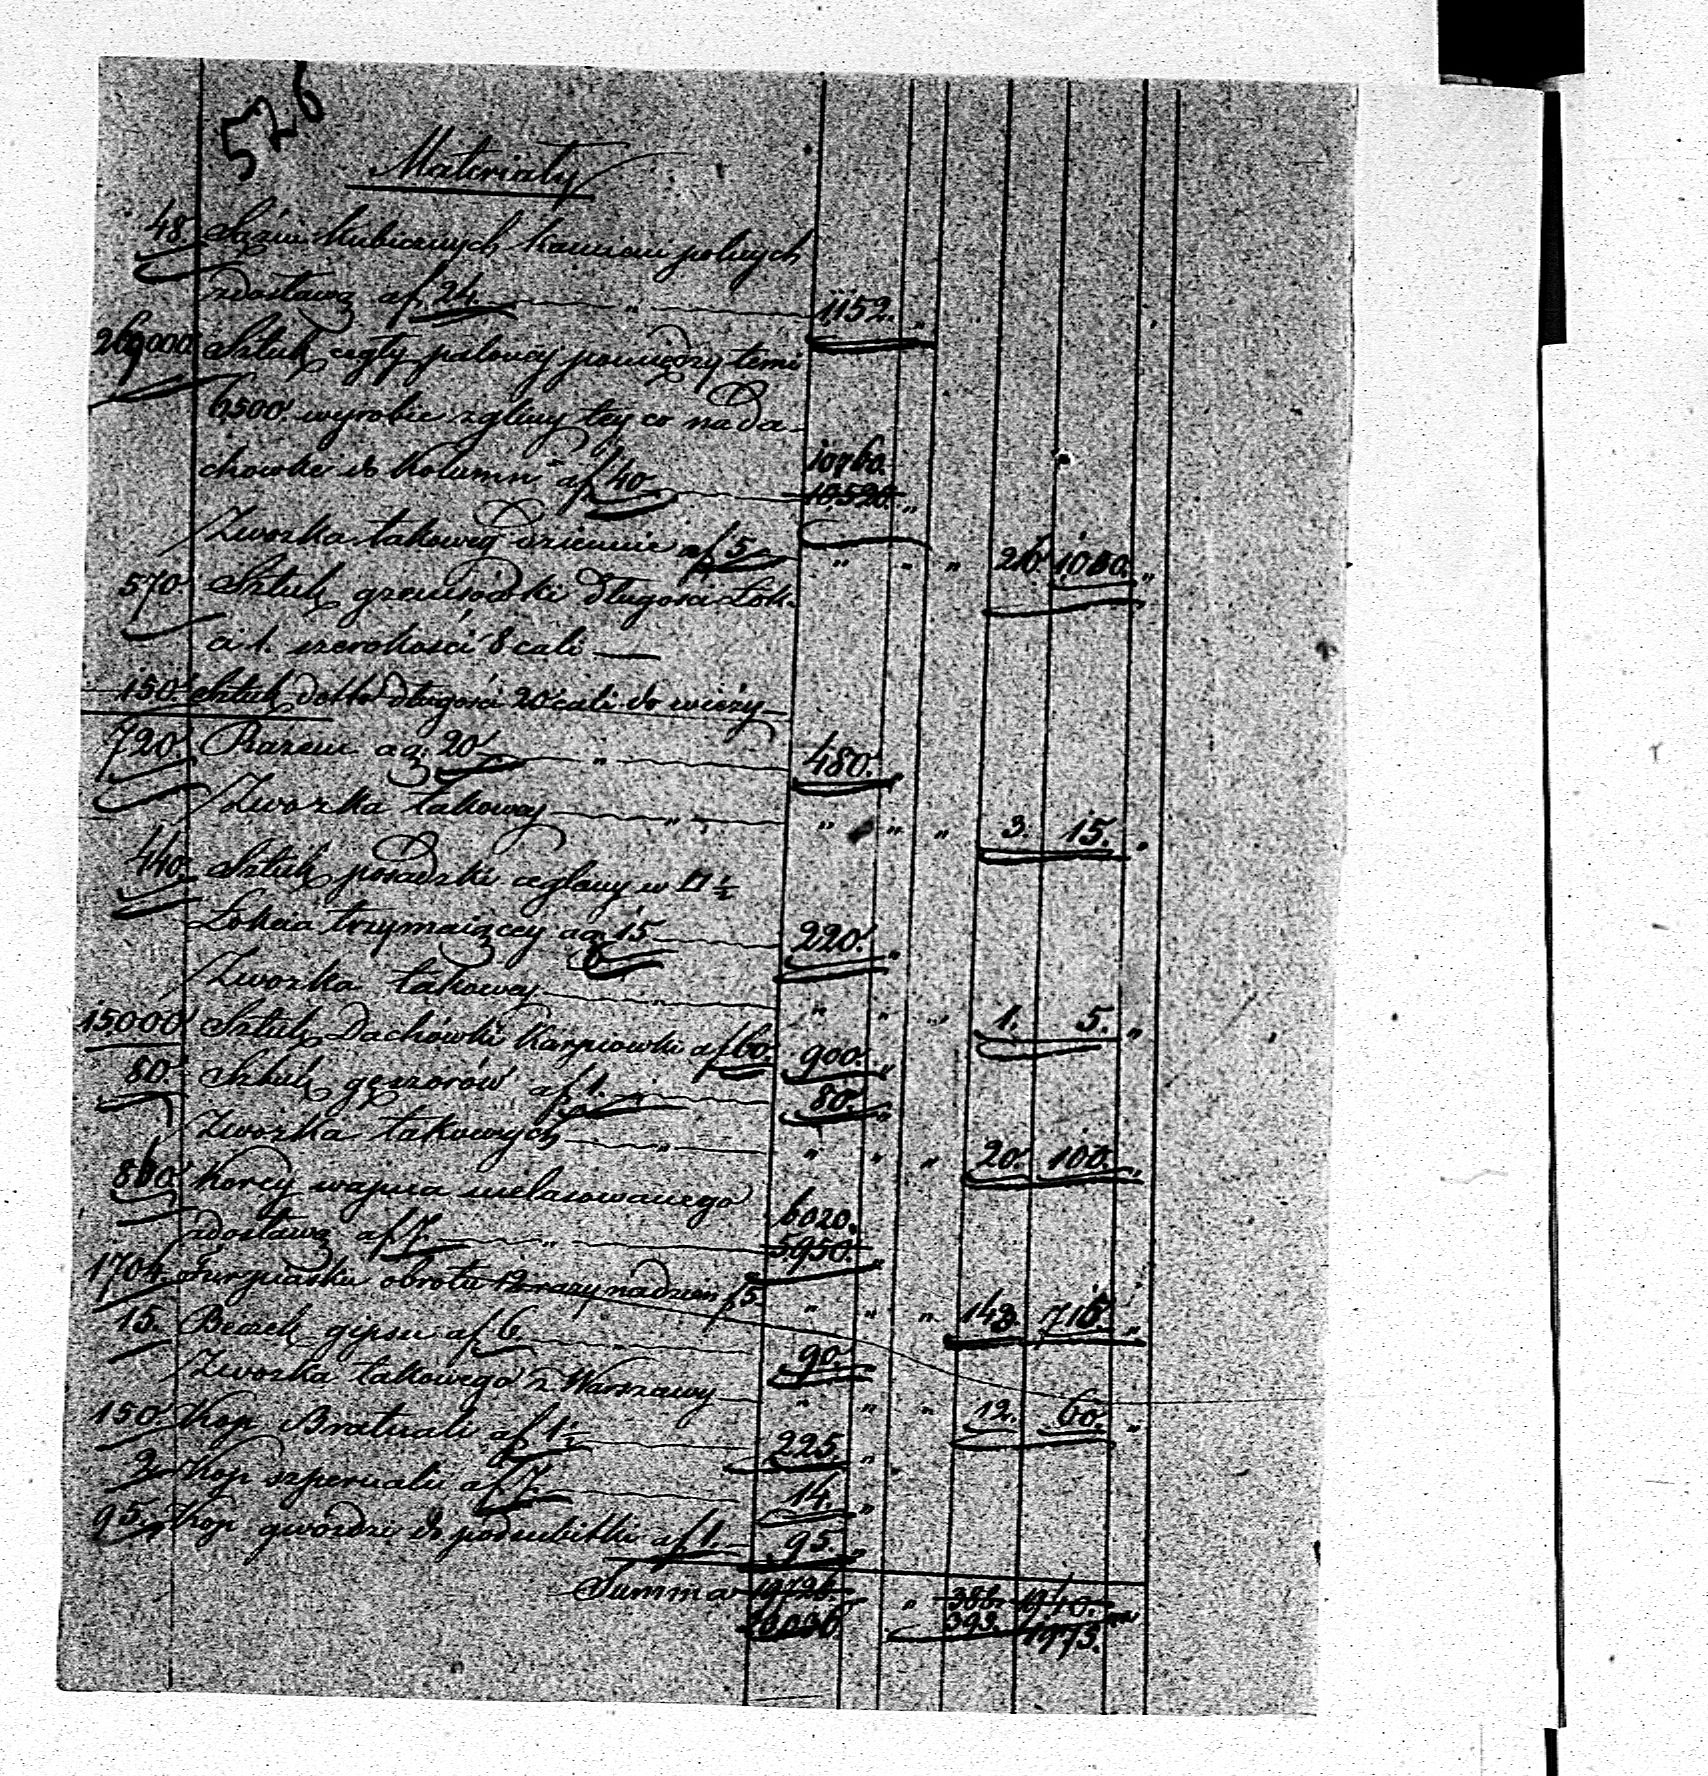 526
Materiały
48. Sążni Kubicznych kamieni polnych
z dostawą a f 24. " 1152. "
269000 Sztuk cegły paloney pomiędzy temi
6500 wyrobić z gliny tey co na da-
chówkę do Kolumn a f 40. 10760. 10,520. "
Zwózka takowey dziennie af 5 " " " 210. 1050. "
570. Sztuk gzemsówki długości Łok-
cia 1. szerokości 8 cali
150. Sztuk detto długości 20 cali do wieży
720. Razem a g. 20 " 480. "
Zwózka takowey " " " " 3. 15. "
440. Sztuk posadzki ceglaney w □ ½
Łokcia trzymaiącey a g 15 220. "
Zwózka takowey " " " " 1. 5. "
15000 Sztuk Dachówki Karpiowki af 60. 900. "
80. Sztuk gęsiorów af 1. 80. "
Zwózka takowych " " " " 20. 100. "
860. Korcy wapna nielasowanego 6020.
z dostawą af 7. " 5950. "
1704. Fur piasku obrotu 12 razy na dzień f 5. " " " 143. 715. "
15. Beczek gipsu af 6. 90. "
Zwózka takowego z Warszawy " " " 12. 60. "
150. Kop Bratnali af 1½ 225. "
2. Kop szpernali af 7. 14. "
95. Kop gwoździ do podsubitki af 1. 95. "
Summa 19726. " 388. 1940.
20036. " 393. 1975.